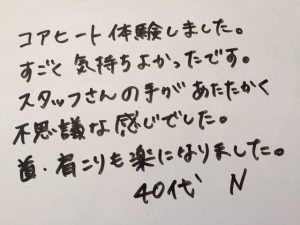 コアヒート体験しました。
すごく気持ちよかったです。
スタッフさんの手があたたかく
不思議な感じでした。
首・肩こりも楽になりました。
40代 N